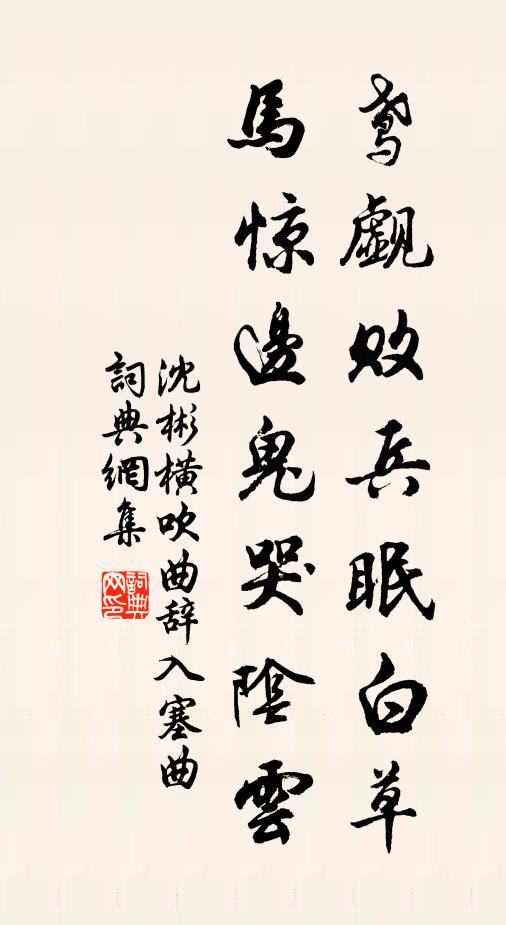 鸢觑败兵眠白草
馬惊邊鬼哭陰雲
沈彬橫吹曲辞入塞曲
詞典網集
詞典网印